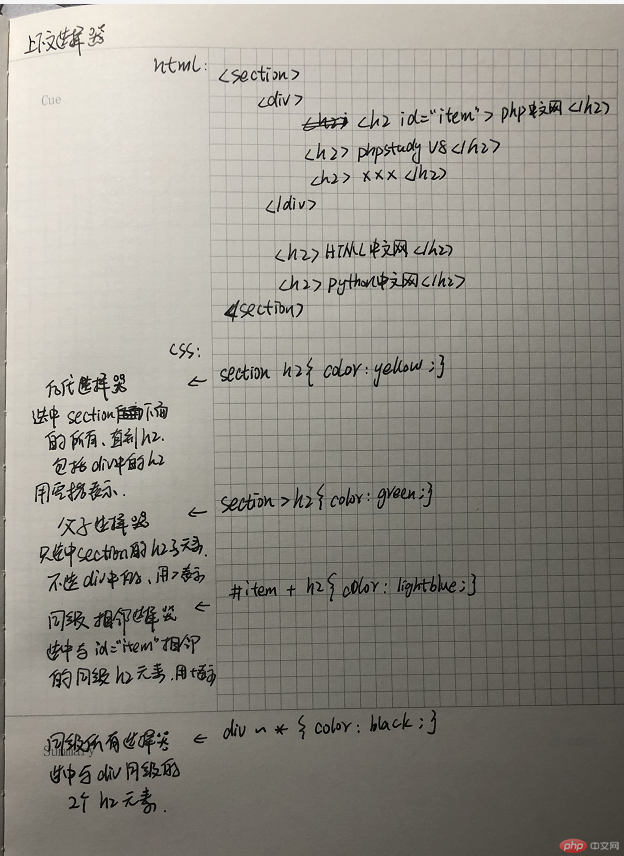 上下文选择器
html:
<section>
Cue
<div>
<h2 id="item"> php中文网 </h2>
<h2> phpstudy V8 </h2>
<h2> xxx </h2>
</div>
<h2> HTML中文网 </h2>
<h2> python中文网 </h2>
</section>
css:
后代选择器 ← section h2{ color: yellow;}
选中 section 下面
的所有、直到h2.
包括div中的h2
用空格表示.
父子选择器 ← section>h2{ color: green;}
只选中section的h2子元素.
不选div中的、用>表示
同级相邻选择器 ← #item + h2{ color: lightblue;}
选中与 id="item"相邻
的同级 h2 元素.用+表示
同级所有选择器 ← div ~ * { color: black;}
Summary
选中与 div 同级的
2个 h2 元素.
php 中文网